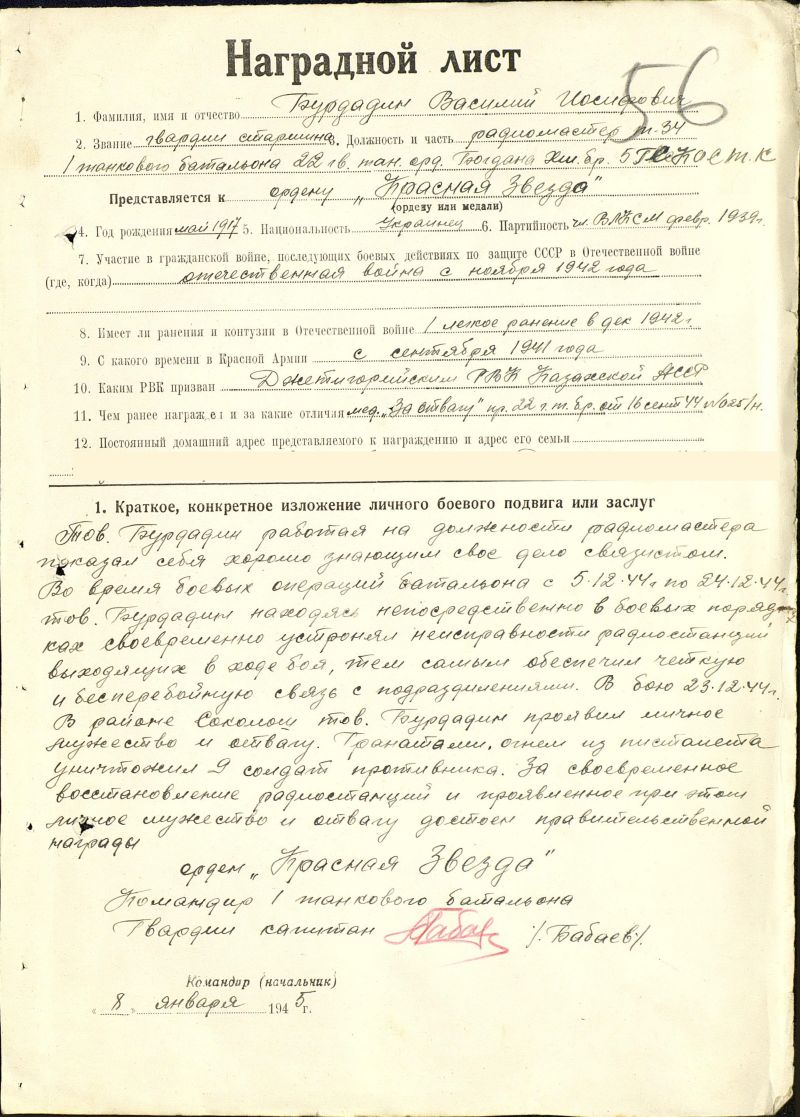 Наградной лист
56
1. Фамилия, имя и отчество Бурдадин Василий Иосифович
2. Звание гвардии старшина 3. Должность и часть радиомастер т-34
1 танкового батальона 22 гв. тан. орд. Богдана Хм. бр. 5
Представляется к ордену „Красная Звезда"
(ордену или медали)
4. Год рождения май 1917 5. Национальность Украинец 6. Партийность чл. ВЛКСМ февр. 1939г.
7. Участие в гражданской войне, последующих боевых действиях по защите СССР в Отечественной войне
(где, когда) отечественная война с ноября 1942 года
8. Имеет ли ранения и контузии в Отечественной войне 1 легкое ранение в дек 1942г.
9. С какого времени в Красной Армии с сентября 1941 года
10. Каким РВК призван Джетигорийским РВК Казахской АССР
11. Чем ранее награжден и за какие отличия мед. „За отвагу" пр. 22 г.т.бр. от 16 сент 44 №025/н.
12. Постоянный домашний адрес представляемого к награждению и адрес его семьи
1. Краткое, конкретное изложение личного боевого подвига или заслуг
Тов. Бурдадин работая на должности радиомастера
показал себя хорошо знающим свое дело связистом.
Во время боевых операций батальона с 5.12.44г по 24.12.44г.
тов. Бурдадин находясь непосредственно в боевых поряд-
ках своевременно устронял неисправности радиостанций
выходящих в ходе боя, тем самым обеспечил чёткую
и бесперебойную связь с подразделениями. В бою 23.12.44г.
В районе Соколош тов. Бурдадин проявил личное
мужество и отвагу. Гранатами, огнем из пистолета
уничтожил 9 солдат противника. За своевременное
восстановление радиостанций и проявленное при этом
личное мужество и отвагу достоен правительственной
награды
орден „Красная Звезда"
Командир 1 танкового батальона
Гвардии капитан /Бабаев/.
Командир (начальник)
„8" января 1945г.